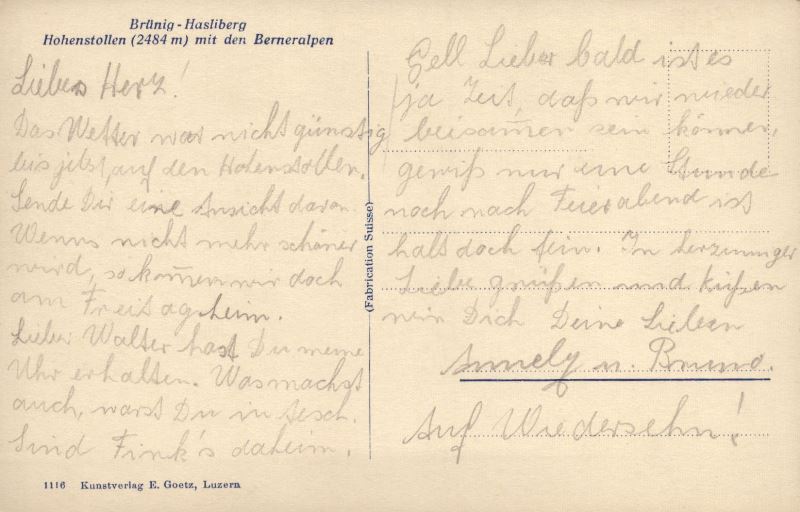 Brünig-Hasliberg
Hohenstollen (2484 m) mit den Berneralpen
Liebes Herz!
Das Wetter war nicht günstig
bis jetzt, auf den Hohenstollen.
Sende Dir eine Ansicht davon.
Wenns nicht mehr schöner
wird, so kom̅en wir doch
am Freitag heim.
Lieber Walter hast Du meine
Uhr erhalten. Was machst
auch, warst Du in Aesch.
Sind Fink's daheim.
1116 Kunstverlag E. Goetz, Luzern
(Fabrication Suisse)
Gell Lieber bald ist es
ja Zeit, daß wir wieder
beisam̅en sein können,
gewiß nur eine Stunde
noch nach Feierabend ist
halt doch fein. In herzinniger
Liebe grüßen und küßen
wir Dich Deine Lieben
Annely u. Bruno.
Auf Wiedersehn!